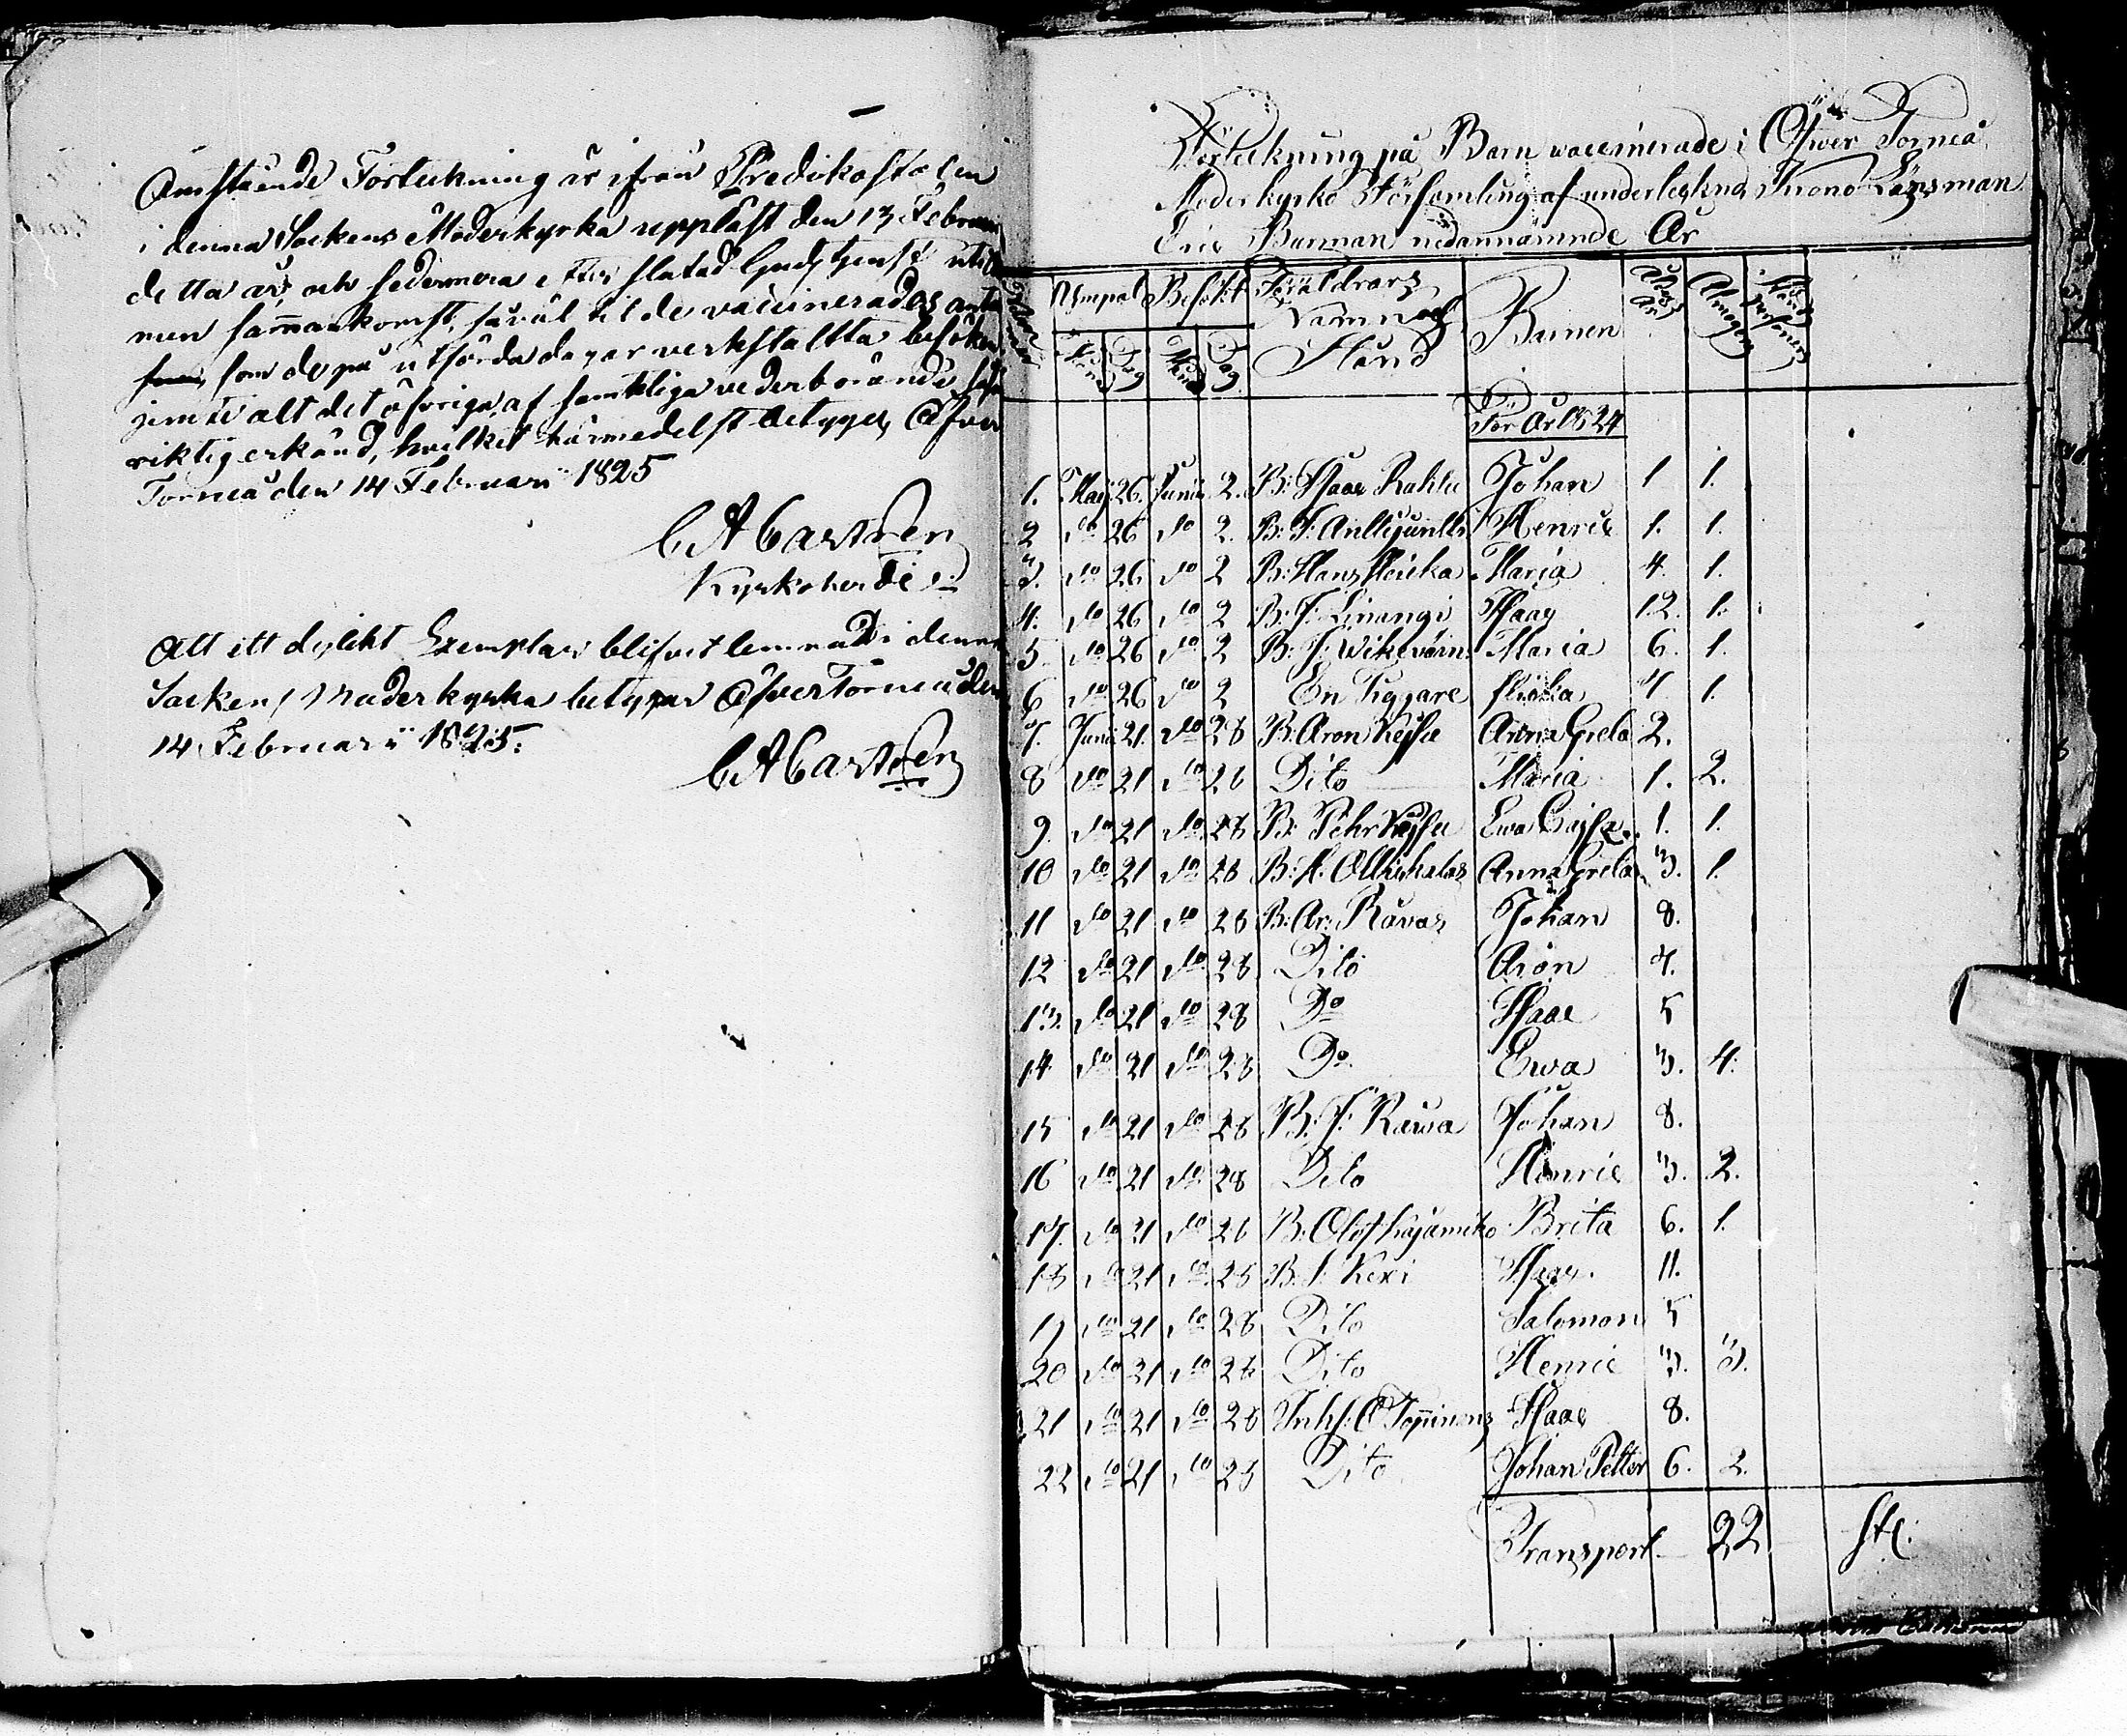 Omstående Forteckning är ifrån Predikostolen
i denna Sockens Moderkyrka uppläst den 13 Februari
detta år, och sedermera efter slutad Gudstjenst uti
men sammankomst, såväl til de vaccinerades antal
som de på utförda dagar verkstalta besöken
jemte alt det öfriga, af samtliga vederbörande, för
riktig erkänd, hvilket härmedelst betyges, Öfver
Torneå den 14 Februari 1825
C A Castren
Kyrkoherde
Att ett dylikt Exemplar blifvit lemnadt i denna
Socken Moderkyrka betygar ÖfverTorneå den
14 Februarii 1825.
C A Castren
Förteckning på Barn vaccinerade i Öfwer Torneå
Moderkyrko Församling af underteknad Krono Länsman
Eric Burman nedannämnde År
Ympat Besökt Föräldrars Namn och Stånd Barnen Ålder År Almogen Stånds Personers
Månad Dag Månad Dag
För År 1824
1. Maij 26. Junii 2. B: Isaac Rahtu Johan 1 1.
2 do 26 do 2. B: J: Anttijuntti Henric 1. 1.
3. do 26 do 2 B: Hans Heicka Maria 4. 1.
4. do 26 do 2 B: J: Linangi Isaac 12. 1.
5. do 26 do 2 B: J: Wikevain Maria 6. 1.
6 do 26 do 2 En Tiggare flicka 7 1.
7. Junii 21. do 28 B: Aron Kejsu Anna Greta 2.
8 do 21 do 28 Dito Maria 1. 2.
9. do 21 do 28 B: Pehr Kejsu Ewa Cajsa 1. 1.
10 do 21 do 28 B: H. Ollikkalas Anna Greta 3. 1.
11 do 21 do 28 B: Ar: Rawas Johan 8.
12 do 21 do 28 Dito Aron 7.
13. do 21 do 28 Do Isaac 5
14 do 21 do 28 Do Ewa 3. 4.
15 do 21 do 28 B: J: Rawa Johan 8.
16 do 21 do 28 Dito Henric 3. 2.
17. do 21 do 28 B: Olof Brita 6. 1.
18 do 21 do 28 B: I: Kexi Isaac 11.
19 do 21 do 28 Dito Salomon 5
20 do 21 do 28 Dito Henric 3. 3.
21 do 21 do 28 Inhs: O Toppinens Isaac 8.
22 do 21 do 28 Dito Johan Petter 6. 2.
Transport 22 st.